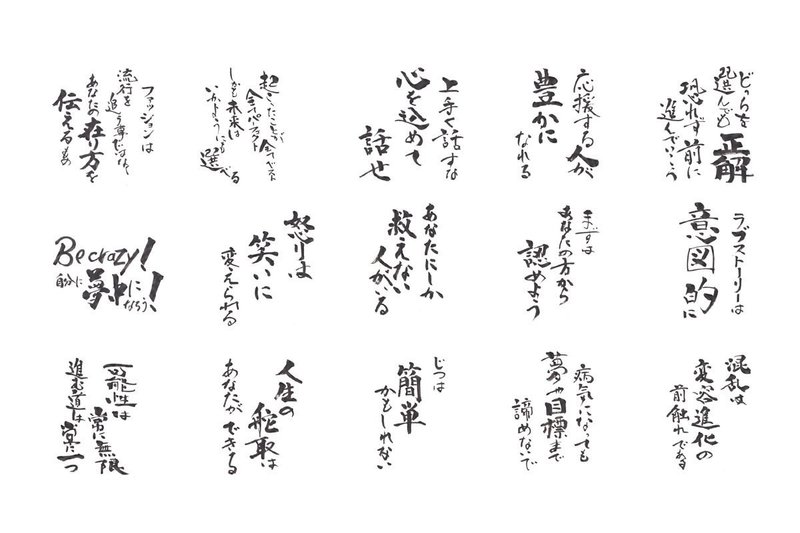 どっちを
選んでも
正解
恐れず前に
進んでいこう
応援する人が
豊かに
なれる
上手く話すな
心を込めて
話せ
起こったことが
全てベスト
しかも未来は
いかようにも
選べる
ファッションは
流行を
追う事だけでなく
あなたの在り方を
伝えるもの
ラブストーリーは
意図的に
まずは
あなたの方から
認めよう
あなたにしか
救えない
人がいる
怒りは
笑いに
変えられる
Be crazy!
自分に夢中になろう!
混乱は
変容進化の
前触れである
病気になっても
夢や目標まで
諦めないで
じつは
簡単
かもしれない
人生の
舵取は
あなたができる
可能性は
常に無限
進む道は
常に一つ